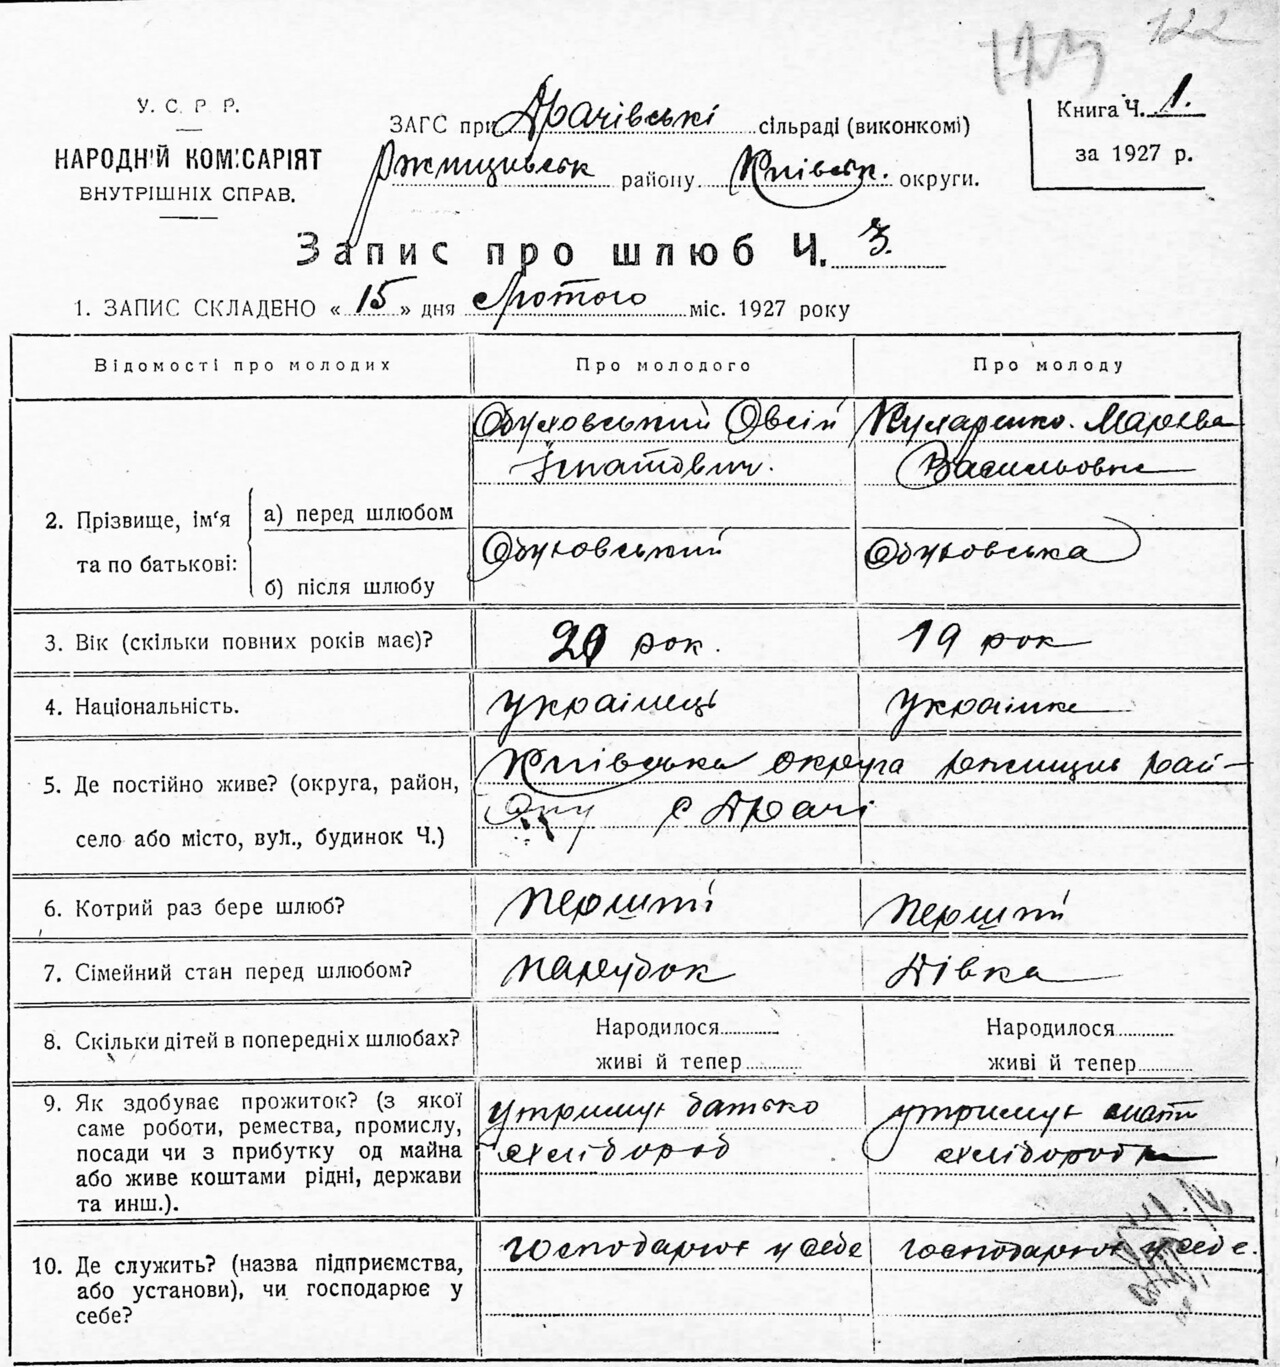 122
У. С. Р. Р.
НАРОДНІЙ КОМІСАРІЯТ
ВНУТРІШНІХ СПРАВ.
ЗАГС при Драчівські сільраді (виконкомі)
Ржищивськ району Київськ. округи.
Книга Ч. 1.
за 1927 р.
Запис про шлюб Ч. 3.
1. ЗАПИС СКЛАДЕНО « 15 » дня Лютого міс. 1927 року
Відомості про молодих Про молодого Про молоду
2. Прізвище, ім'я та по батькові:
а) перед шлюбом
Обуховський Овсій Ігнатович.
Марева Васильовна
б) після шлюбу
Обуховський
Обуховська
3. Вік (скільки повних років має)?
20 рок.
19 рок
4. Національність.
Українець
Українка
5. Де постійно живе? (округа, район,
село або місто, вул., будинок Ч.)
Київська округа ржищив рай-
ону с Драчі
6. Котрий раз бере шлюб?
перший
перший
7. Сімейний стан перед шлюбом?
парубок
дівка
8. Скільки дітей в попередніх шлюбах?
Народилося
живі й тепер
Народилося
живі й тепер
9. Як здобуває прожиток? (з якої
саме роботи, ремества, промислу,
посади чи з прибутку од майна
або живе коштами рідні, держави
та инш.).
утримує батько
хлібороб
утримує мати
хліборобка
10. Де служить? (назва підприємства,
або установи), чи господарює у
себе?
господарює у себе
господарює у себе.